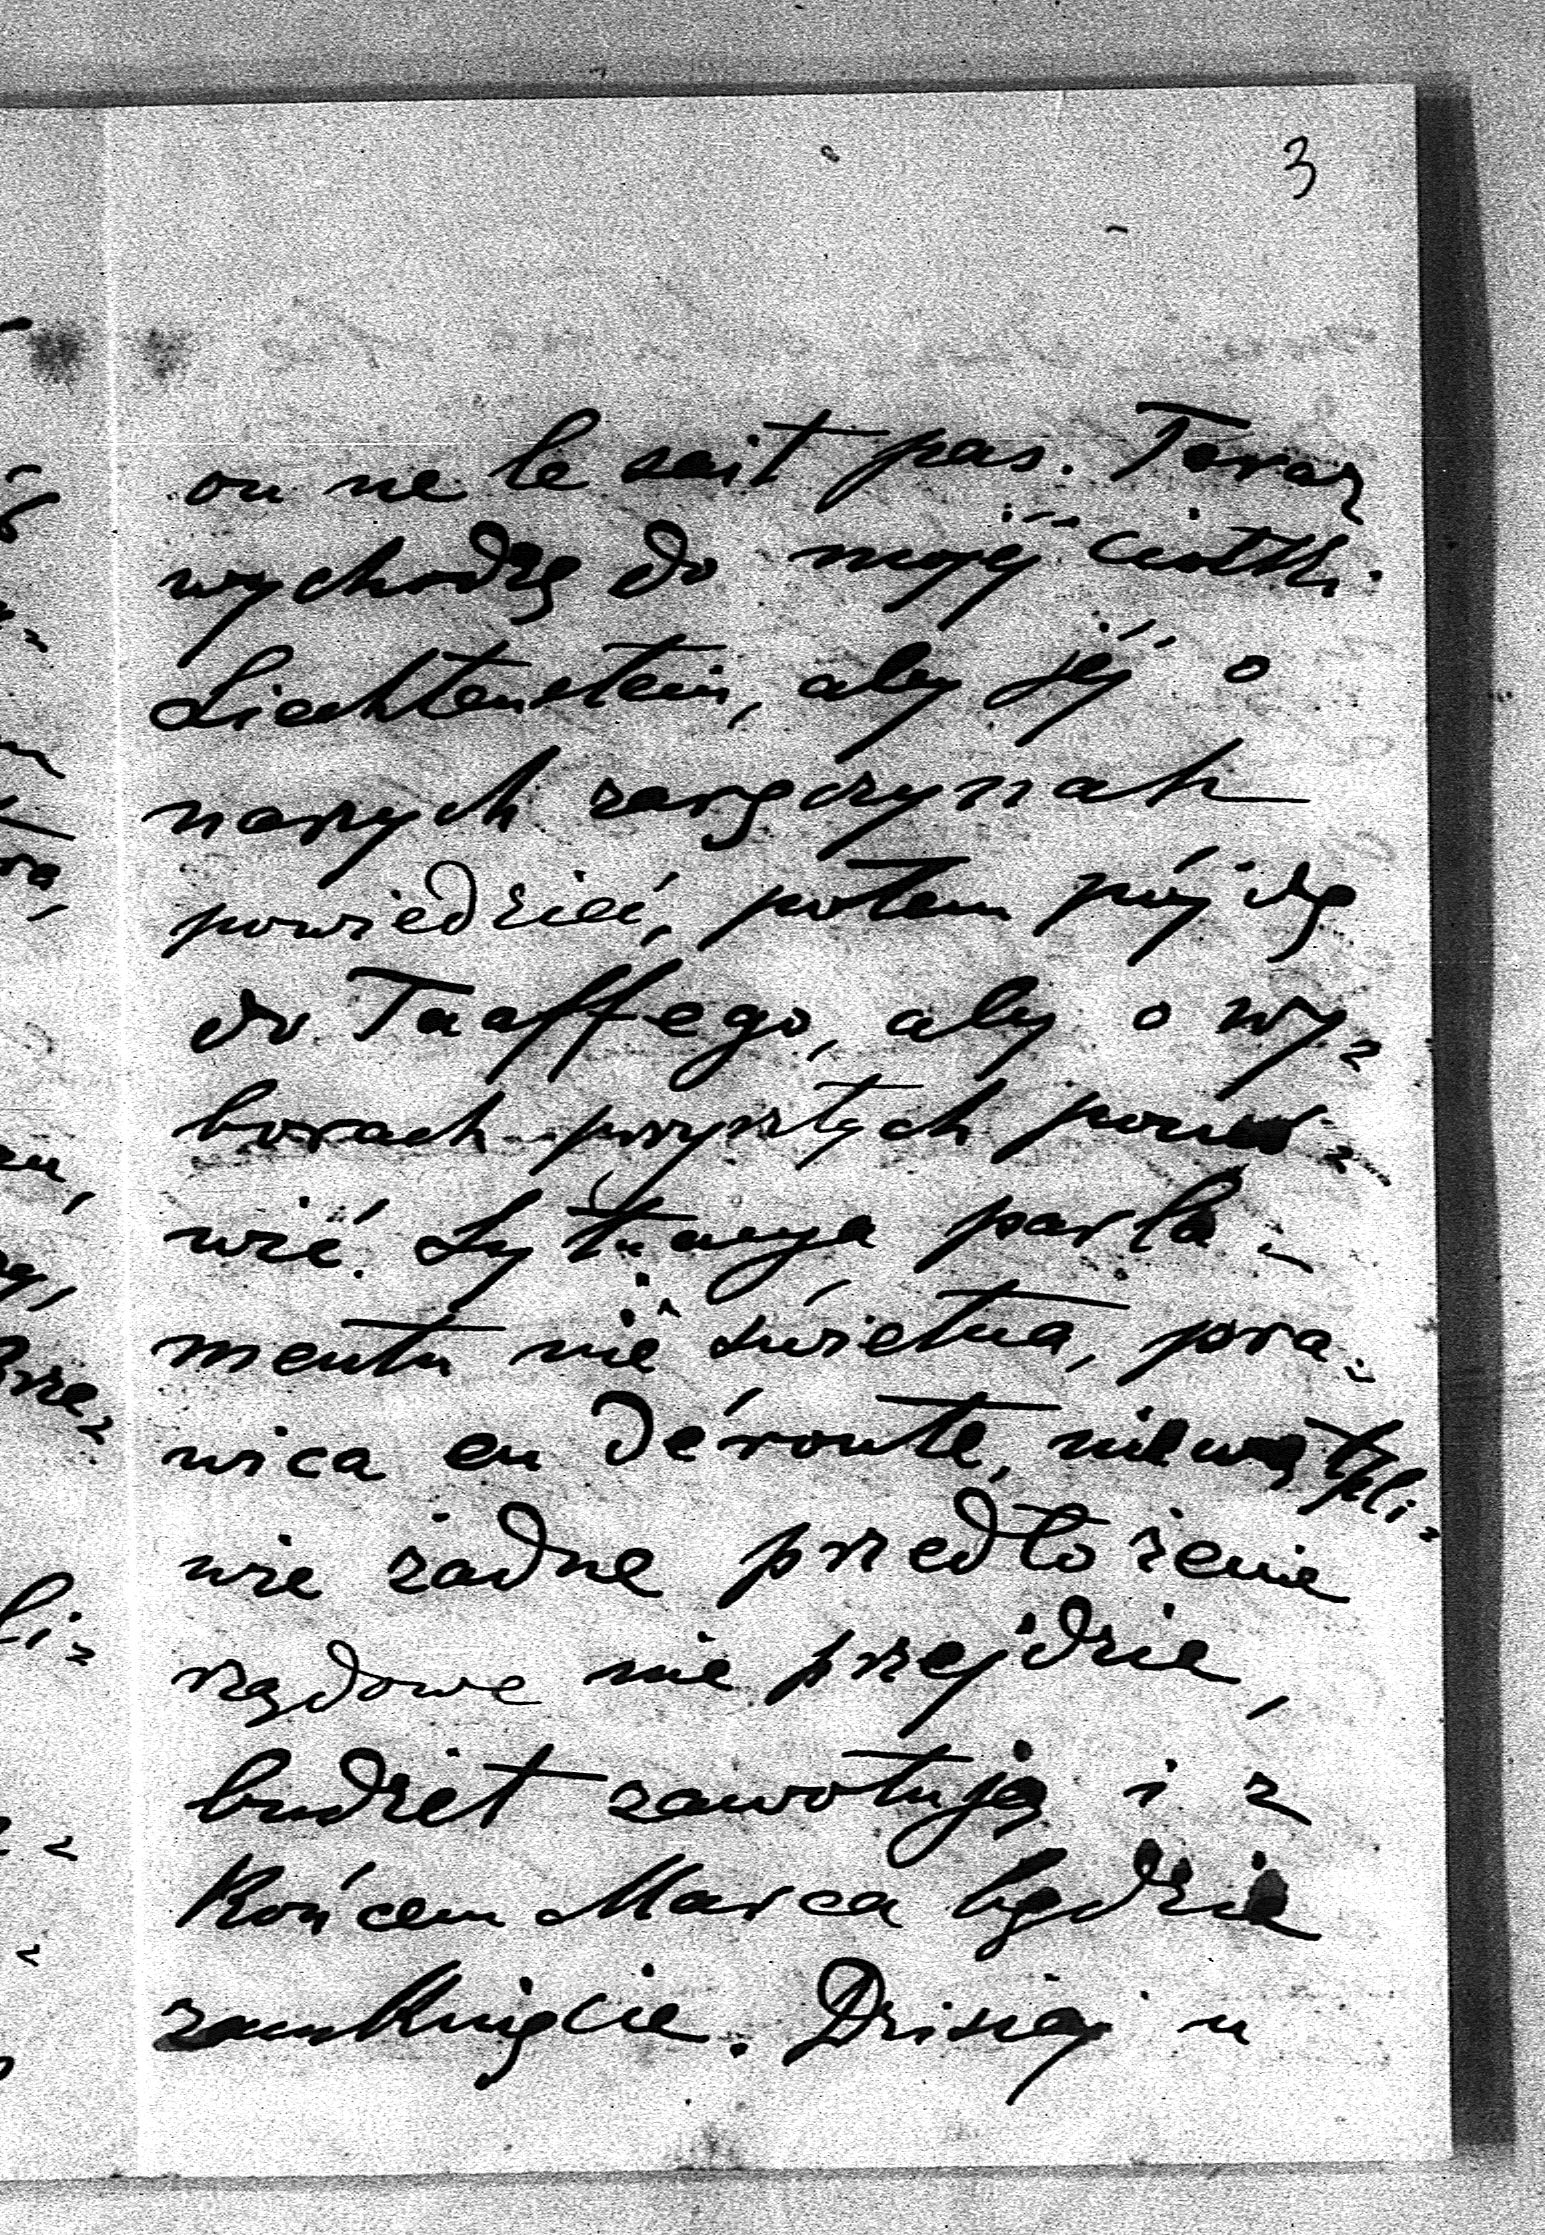 3
on ne le sait pas. Teraz
wychodzę do mojéj ciotki
Liechtenstein, aby jéj o
naszych zaręczynah
powiedzieć, potem pójdę
do Taaffego, aby o wy=
borach przyszłych pomó=
wić. Sytuacya parla=
mentu nie świetna, pra=
wica en déroute, niewątpli=
wie żadne przedłożenie
rządowe nie przejdzie,
budżet zawotują i z
Końcem Marca będzie
zamknięcie. Dzisiaj u